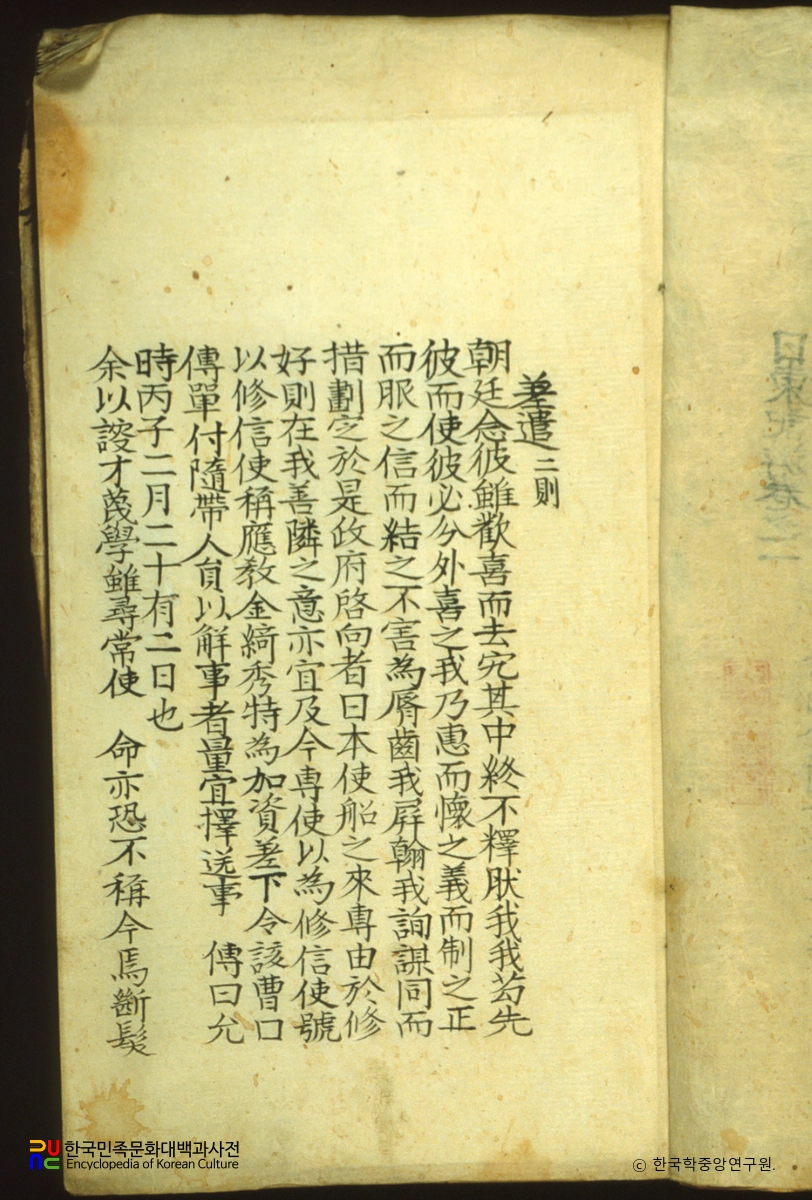 差遣 二則
朝廷念彼雖歡喜而去究其中終不釋肰我我茍先
彼而使彼必分外喜之我乃惠而懷之義而制之正
而服之信而結之不害為脣齒我屛翰我詢謀同而
措劃定於是政府啓向者日本使船之來專由於修
好則在我善隣之意亦宜及今専使以為修信使號
以修信使稱應教金綺秀特為加資差下令該曹口
傳單付隨帶人貟以解事者量宜擇送事 傳曰允
時丙子二月二十有二日也
余以謏才蔑學雖尋常使 命亦恐不稱今焉斷髮
日東記游卷之二
한국민족문화대백과사전
Encyclopedia of Korean Culture
© 한국학중앙연구원.